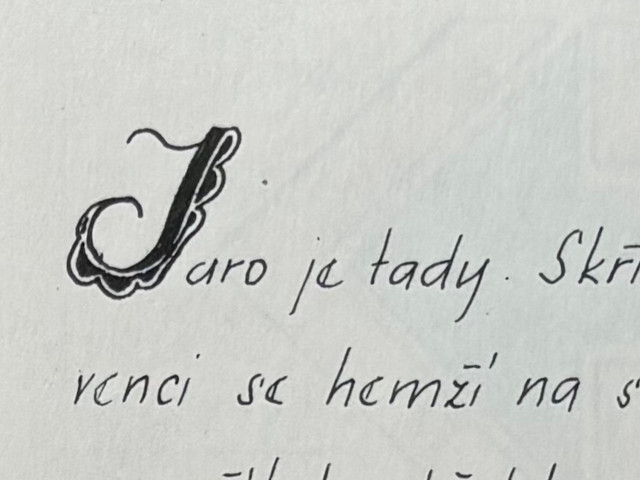 Jaro je tady. Skř
venci se hemží na s